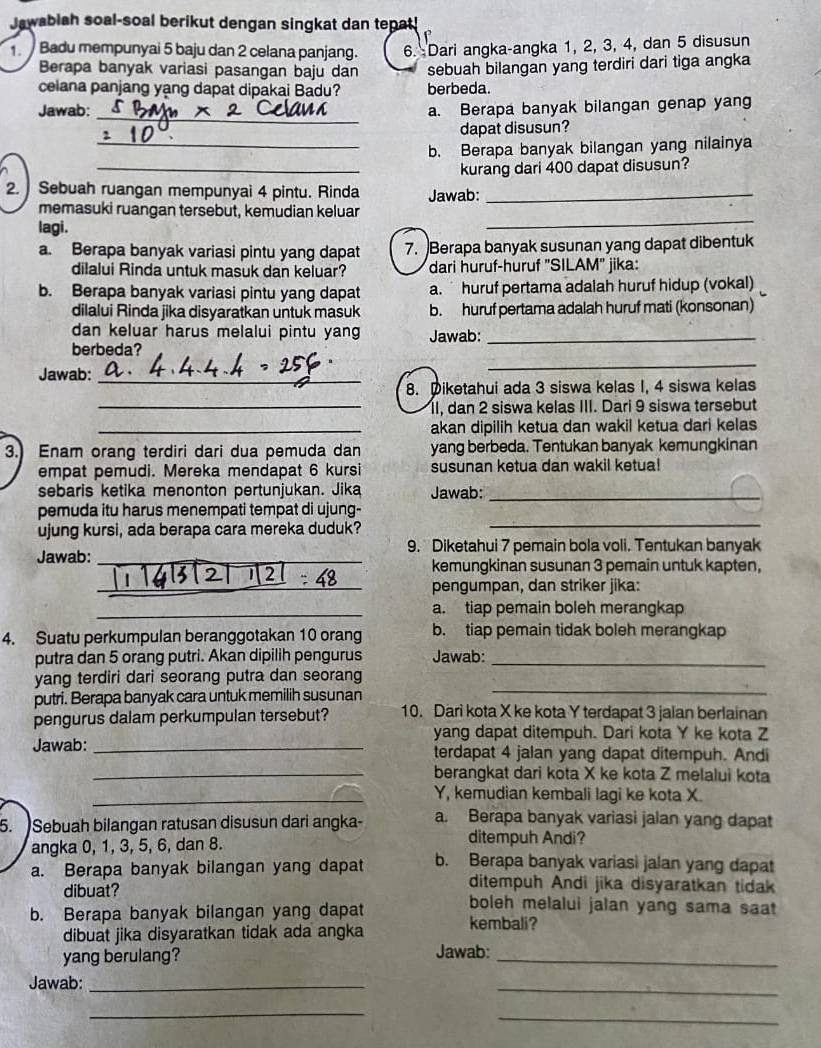 Jawablah soal-soal berikut dengan singkat dan tepat!
1. Badu mempunyai 5 baju dan 2 celana panjang.
Berapa banyak variasi pasangan baju dan
celana panjang yang dapat dipakai Badu?
Jawab: 5 Baju x 2 Celana
= 10.
2. Sebuah ruangan mempunyai 4 pintu. Rinda
memasuki ruangan tersebut, kemudian keluar
lagi.
a. Berapa banyak variasi pintu yang dapat
dilalui Rinda untuk masuk dan keluar?
b. Berapa banyak variasi pintu yang dapat
dilalui Rinda jika disyaratkan untuk masuk
dan keluar harus melalui pintu yang
berbeda?
Jawab: a. 4.4.4.4 = 256.
3. Enam orang terdiri dari dua pemuda dan
empat pemudi. Mereka mendapat 6 kursi
sebaris ketika menonton pertunjukan. Jika
pemuda itu harus menempati tempat di ujung-
ujung kursi, ada berapa cara mereka duduk?
Jawab:
1 4 3 2 1 2 = 48
4. Suatu perkumpulan beranggotakan 10 orang
putra dan 5 orang putri. Akan dipilih pengurus
yang terdiri dari seorang putra dan seorang
putri. Berapa banyak cara untuk memilih susunan
pengurus dalam perkumpulan tersebut?
Jawab:
5. Sebuah bilangan ratusan disusun dari angka-
angka 0, 1, 3, 5, 6, dan 8.
a. Berapa banyak bilangan yang dapat
dibuat?
b. Berapa banyak bilangan yang dapat
dibuat jika disyaratkan tidak ada angka
yang berulang?
Jawab:
6. Dari angka-angka 1, 2, 3, 4, dan 5 disusun
sebuah bilangan yang terdiri dari tiga angka
berbeda.
a. Berapa banyak bilangan genap yang
dapat disusun?
b. Berapa banyak bilangan yang nilainya
kurang dari 400 dapat disusun?
Jawab:
7. Berapa banyak susunan yang dapat dibentuk
dari huruf-huruf "SILAM" jika:
a. huruf pertama adalah huruf hidup (vokal)
b. huruf pertama adalah huruf mati (konsonan)
Jawab:
8. Diketahui ada 3 siswa kelas I, 4 siswa kelas
II, dan 2 siswa kelas III. Dari 9 siswa tersebut
akan dipilih ketua dan wakil ketua dari kelas
yang berbeda. Tentukan banyak kemungkinan
susunan ketua dan wakil ketua!
Jawab:
9. Diketahui 7 pemain bola voli. Tentukan banyak
kemungkinan susunan 3 pemain untuk kapten,
pengumpan, dan striker jika:
a. tiap pemain boleh merangkap
b. tiap pemain tidak boleh merangkap
Jawab:
10. Dari kota X ke kota Y terdapat 3 jalan berlainan
yang dapat ditempuh. Dari kota Y ke kota Z
terdapat 4 jalan yang dapat ditempuh. Andi
berangkat dari kota X ke kota Z melalui kota
Y, kemudian kembali lagi ke kota X.
a. Berapa banyak variasi jalan yang dapat
ditempuh Andi?
b. Berapa banyak variasi jalan yang dapat
ditempuh Andi jika disyaratkan tidak
boleh melalui jalan yang sama saat
kembali?
Jawab: